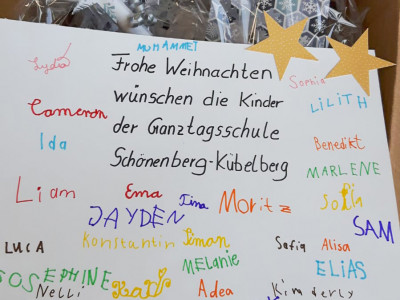 MUHAMMET
Frohe Weihnachten
wünschen die Kinder
der Ganztagsschule
Schönenberg-Kübelberg
Lydia
Sophia
LiLiTH
Cameron
Ida
Benedikt
MARLENE
Liam
Ema
Tina
Moritz
Sofia
JAYDEN
SAM
LUCA
Konstantin
Simon
Safia
Alisa
MELanie
ELiAS
JOSEPHINE
Nelli
Adea
Kimderly